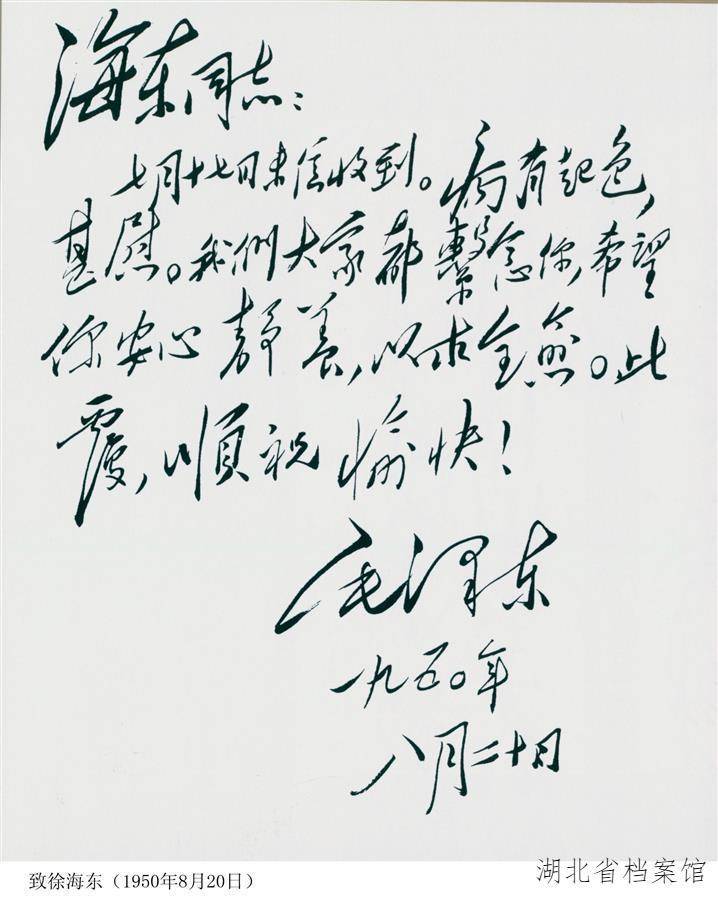 海东同志：
七月十七日来信收到。病有起色，
甚慰。我们大家都繫念你，希望
你安心静养，以求全愈。此
覆，顺祝愉快！
毛泽东
一九五〇年
八月二十日
致徐海东（1950年8月20日）
湖北省档案馆